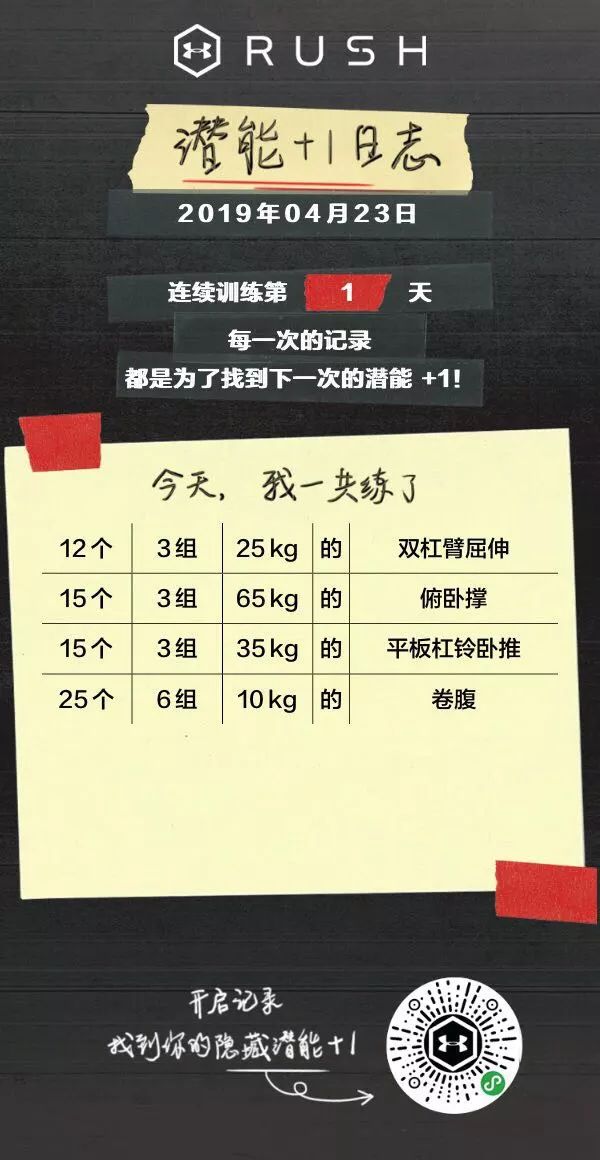 RUSH
潜能+1日志
2019年04月23日
连续训练第 1 天
每一次的记录
都是为了找到下一次的潜能 +1!
今天，我一共练了
12个 3组 25kg 的 双杠臂屈伸
15个 3组 65kg 的 俯卧撑
15个 3组 35kg 的 平板杠铃卧推
25个 6组 10kg 的 卷腹
开启记录
找到你的隐藏潜能+1